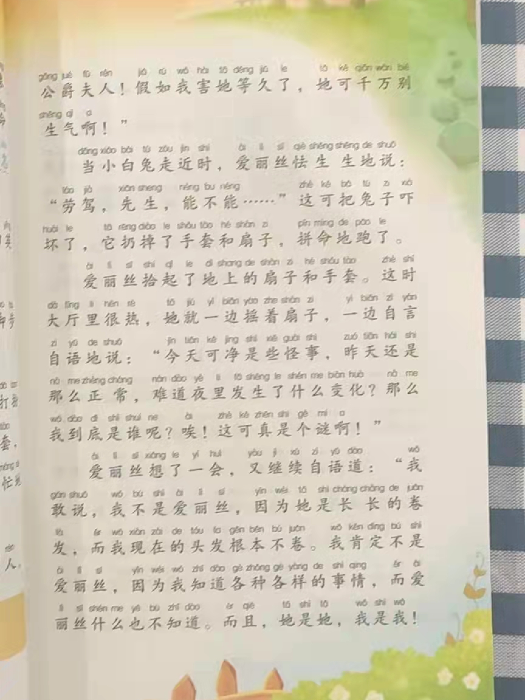 gōng jué fū rén jiǎ rú wǒ hài tā děng jiǔ le tā kě qiān wàn bié
公爵夫人！假如我害她等久了，她可千万别
shēng qì a
生气啊！”
dāng xiǎo bái tù zǒu jìn shí ài lì sī qiè shēng shēng de shuō
当小白兔走近时，爱丽丝怯生生地说：
láo jià xiān sheng néng bu néng zhè kě bǎ tù zi xià
“劳驾，先生，能不能……”这可把兔子吓
huài le tā rēng diào le shǒu tào hé shàn zi pīn mìng de pǎo le
坏了，它扔掉了手套和扇子，拼命地跑了。
ài lì sī shí qǐ le dì shang de shàn zi hé shǒu tào zhè shí
爱丽丝拾起了地上的扇子和手套。这时
dà tīng li hěn rè tā jiù yì biān yáo zhe shàn zi yì biān zì yán
大厅里很热，她就一边摇着扇子，一边自言
zì yǔ de shuō jīn tiān kě jìng shì xiē guài shì zuó tiān hái shi
自语地说：“今天可净是些怪事，昨天还是
nà me zhèng cháng nán dào yè li fā shēng le shén me biàn huà nà me
那么正常，难道夜里发生了什么变化？那么
wǒ dào dǐ shì shuí ne āi zhè kě zhēn shì gè mí a
我到底是谁呢？唉！这可真是个谜啊！”
ài lì sī xiǎng le yí huì yòu jì xù zì yǔ dào wǒ
爱丽丝想了一会，又继续自语道：“我
gǎn shuō wǒ bú shì ài lì sī yīn wèi tā shì cháng cháng de juǎn
敢说，我不是爱丽丝，因为她是长长的卷
fà ér wǒ xiàn zài de tóu fa gēn běn bù juǎn wǒ kěn dìng bú shì
发，而我现在的头发根本不卷。我肯定不是
ài lì sī yīn wèi wǒ zhī dào gè zhǒng gè yàng de shì qing ér ài
爱丽丝，因为我知道各种各样的事情，而爱
lì sī shén me yě bù zhī dào ér qiě tā shì tā wǒ shì wǒ
丽丝什么也不知道。而且，她是她，我是我！